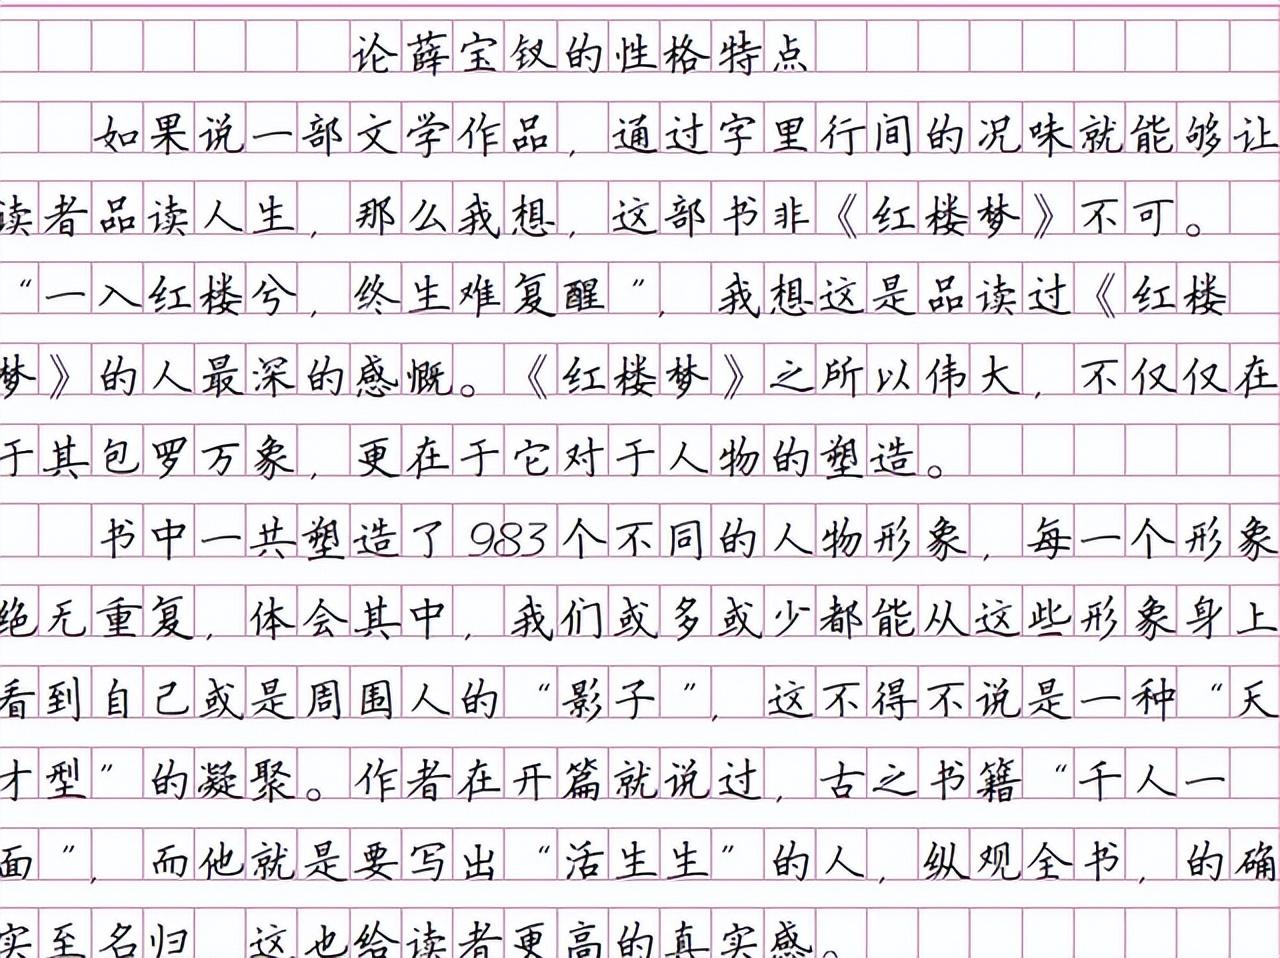 论薛宝钗的性格特点
如果说一部文学作品，通过字里行间的况味就能够让
读者品读人生，那么我想，这部书非《红楼梦》不可。
“一入红楼兮，终生难复醒”，我想这是品读过《红楼
梦》的人最深的感慨。《红楼梦》之所以伟大，不仅仅在
于其包罗万象，更在于它对于人物的塑造。
书中一共塑造了983个不同的人物形象，每一个形象
绝无重复，体会其中，我们或多或少都能从这些形象身上
看到自己或是周围人的“影子”，这不得不说是一种“天
才型”的凝聚。作者在开篇就说过，古之书籍“千人一
面”，而他就是要写出“活生生”的人，纵观全书，的确
实至名归 这也给读者更高的真实感。